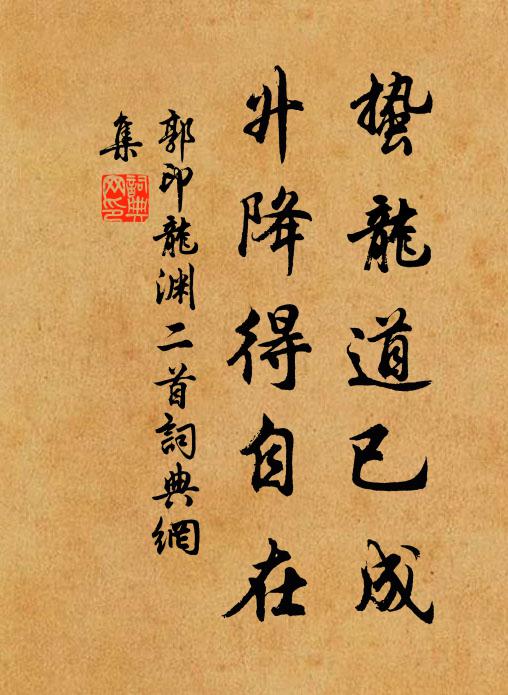 蟄龍道已成
升降得自在
郭印龍淵二首詞典網
集
詞典
网印